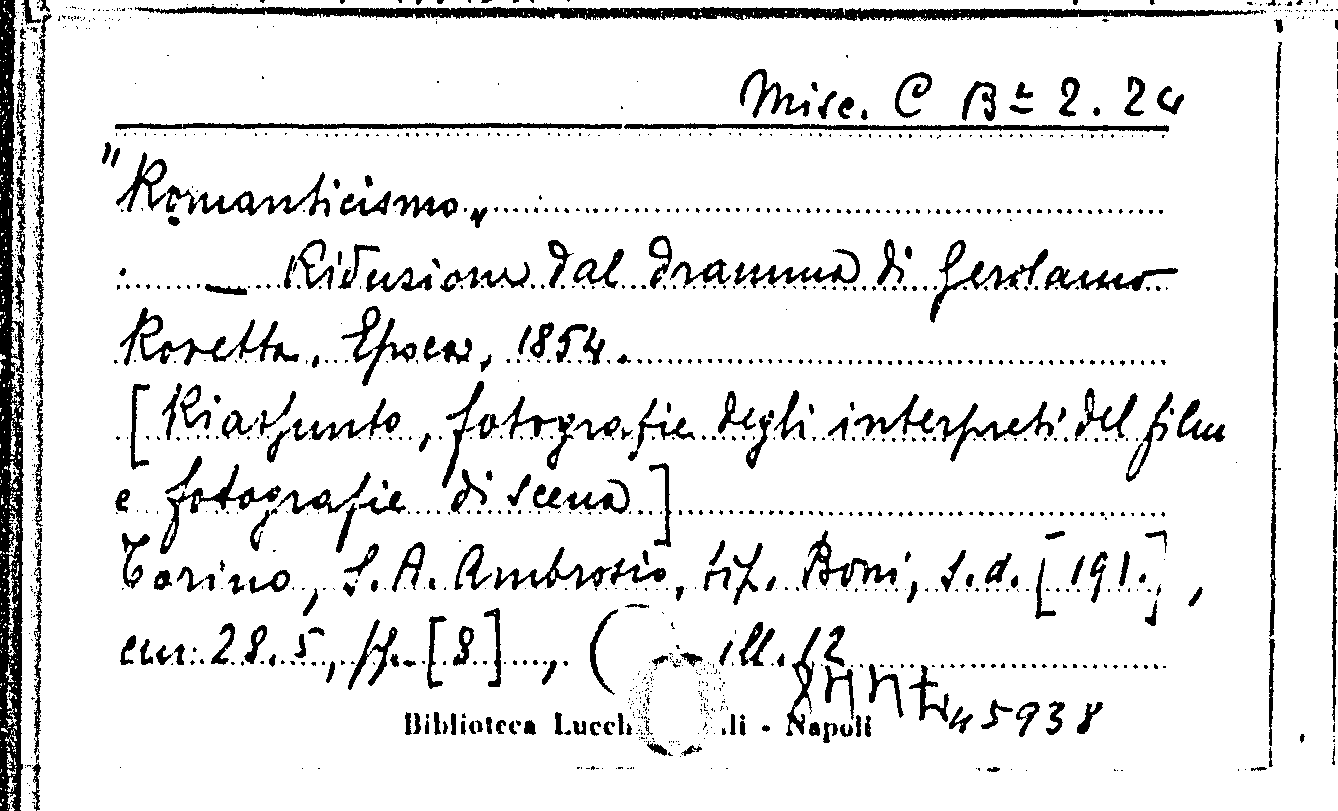 Misc. C Bta 2. 24
"Romanticismo"
— Riduzione dal dramma di Gerolamo
Rovetta. Epoca, 1854.
[Riassunto, fotografie degli interpreti del film
e fotografie di scena]
Torino, S.A. Ambrosio, tip. Boni, s.d. [191.],
cm. 28.5, pp. [8], ( ill. 12
45938
Biblioteca Lucch li - Napoli